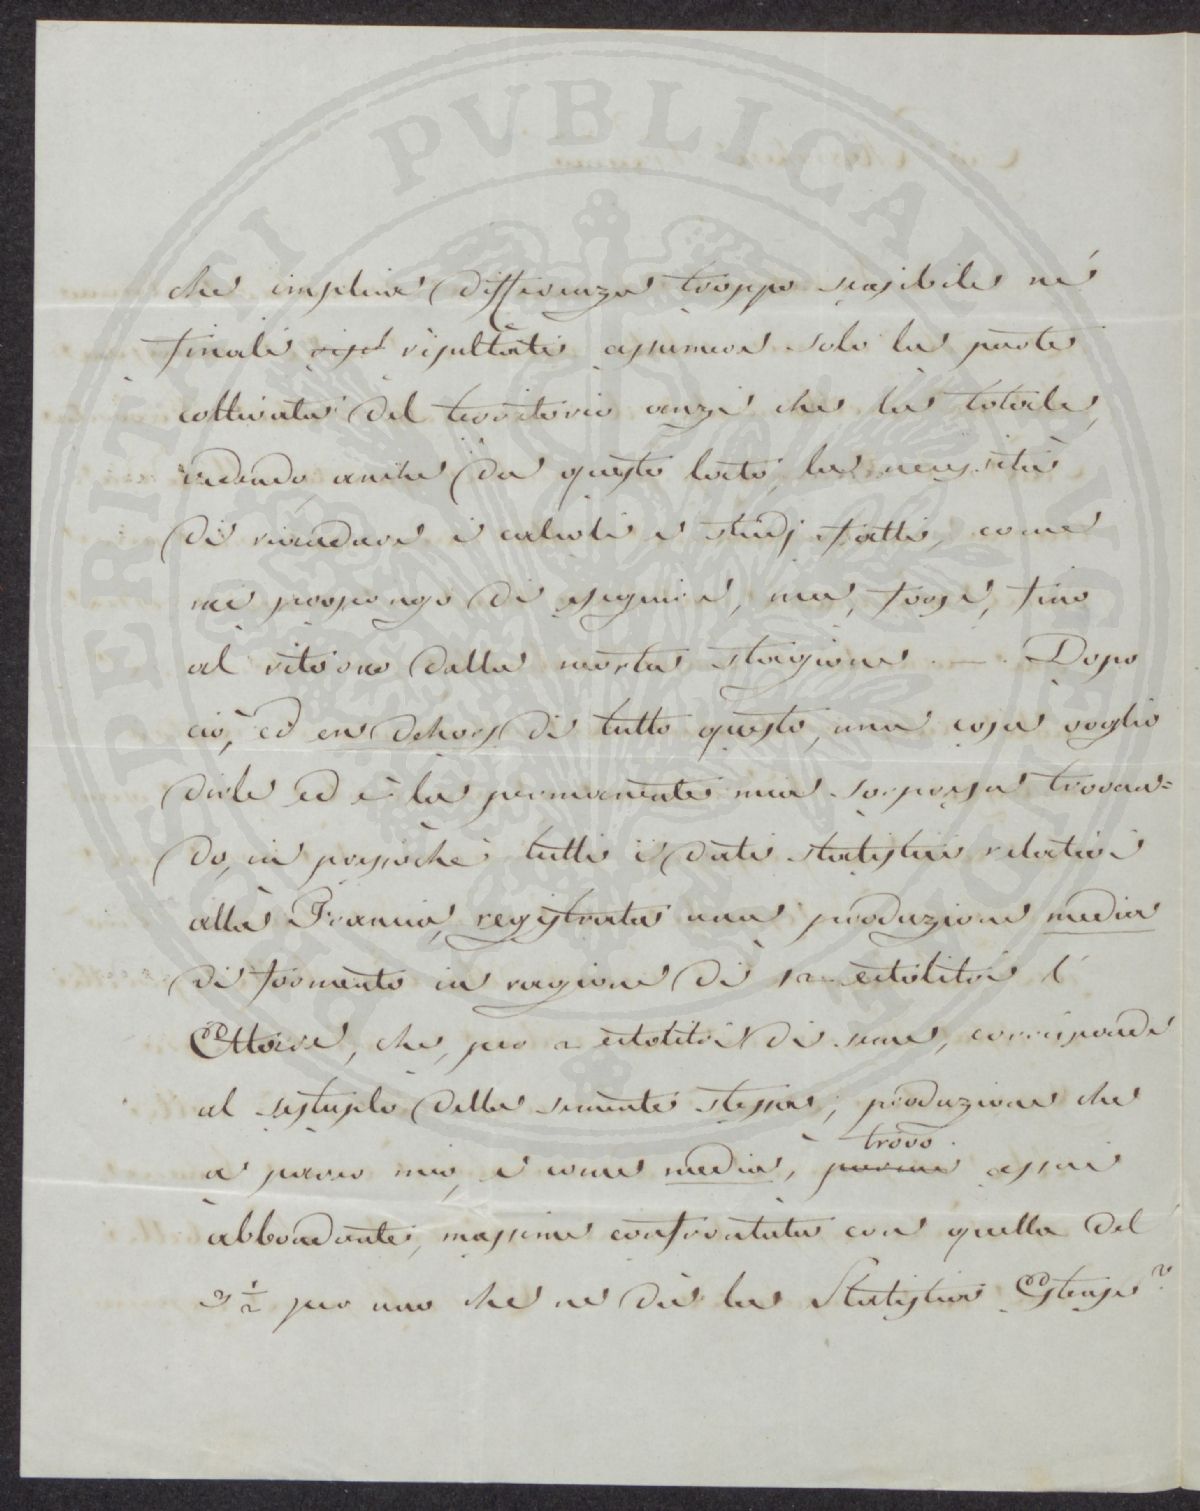 che implica differenza troppo sensibile nè
finali risul risultati assumere solo la parte
coltivata del territorio anzi che la totale,
vedendo, anche da questo lato, la necessità
di rivedere i calcoli e studj fatti, come
mi propongo di eseguire, ma, forse, fino
al ritorno della morta stagione. — Dopo
ciò, ed en dehors di tutto questo, una cosa voglio
dirle ed è la permanente mia sorpresa trovan=
do, in pressochè tutti i dati statistici relativi
alla Francia, registrata una produzione media
di formento in ragione di 12 ettolitri l'
Ettare, che, per 2 ettolitri di seme, corrisponde
al sestuplo della semente stessa; produzione che
a parer mio, e come media, trovo assai
abbondante, massime confrontata con quella del
3 1/2 per uno che ne dà la Statistica Estense
PERITI PVBLICAE